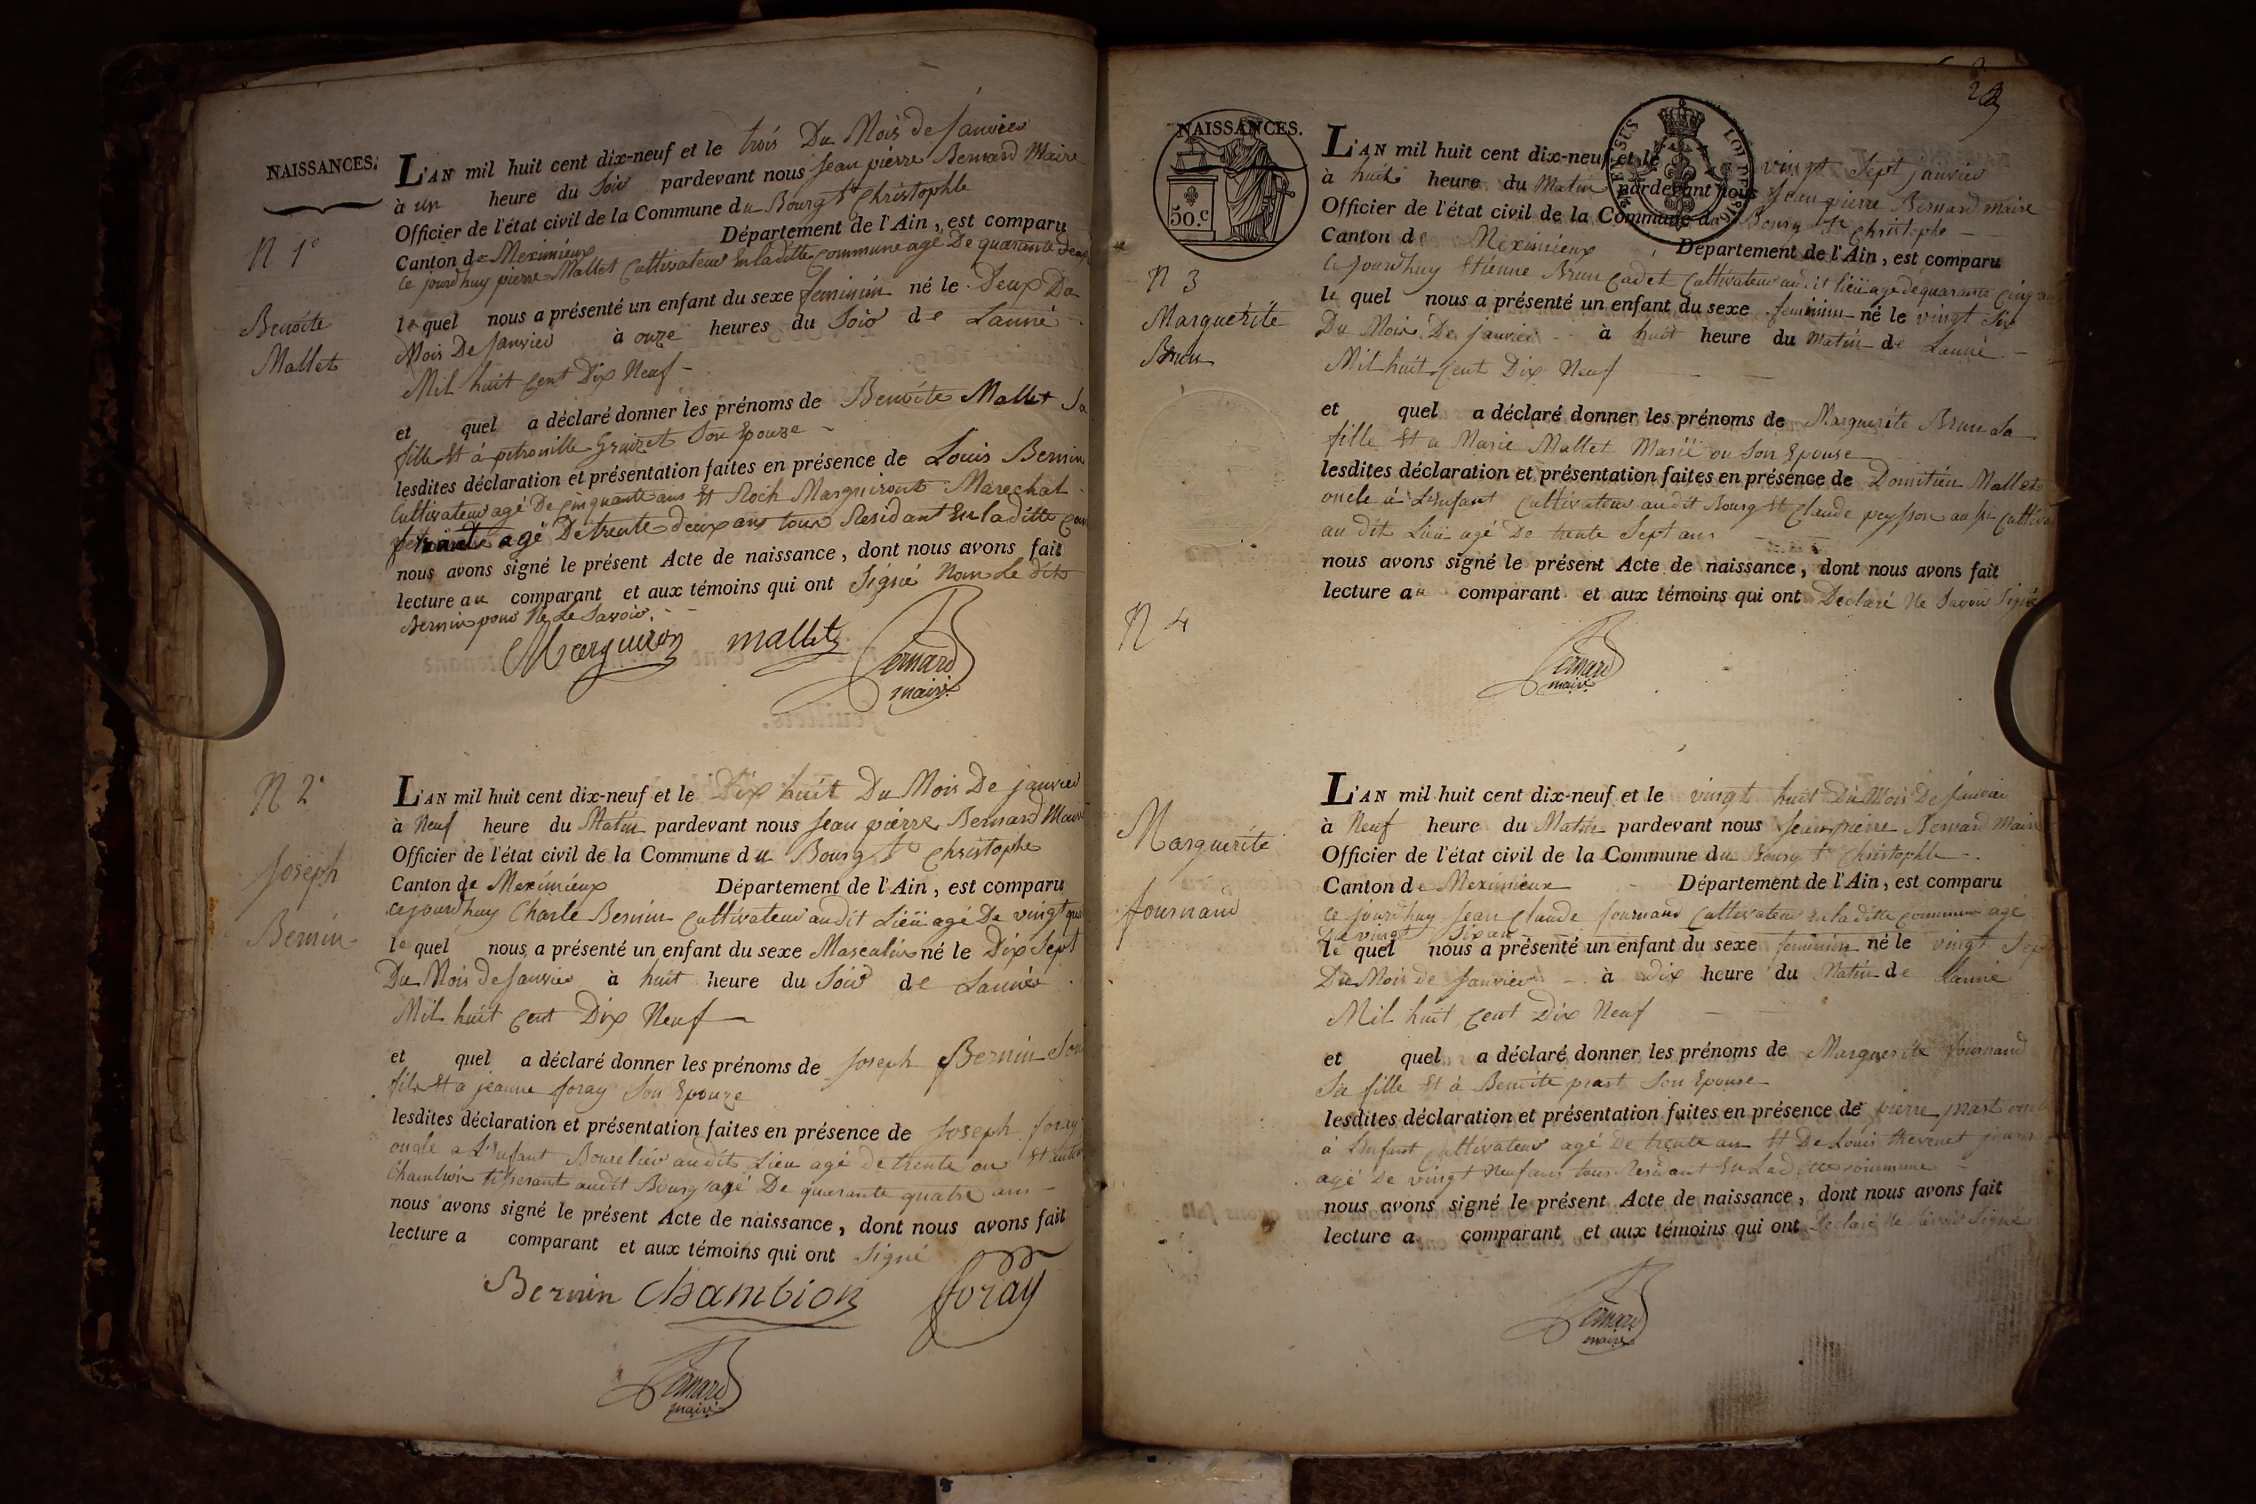 NAISSANCES.
N 1º
Benoîte
Mallet
L'AN mil huit cent dix-neuf et le trois Du Mois de Janvier
à un heure du Soir pardevant nous Jean pierre Bernard Maire
Officier de l'état civil de la Commune du Bourg St Christophle
Canton de Meximieux Département de l'Ain, est comparu
ce jourdhuy pierre Mallet Cultivateur En la ditte commune agé De quarante deux
le quel nous a présenté un enfant du sexe feminin né le Deux Du
Mois De Janvier à onze heures du Soir de Lanné
Mil huit Cent Dix Neuf
et quel a déclaré donner les prénoms de Benoîte Mallet Sa
fille Et à petronille Son Epouse
lesdites déclaration et présentation faites en présence de Louis Bernin
Cultivateur agé De Cinquante ans Et Roch Marguiront Marechal
agé De trente deux ans tous Residant En la ditte
nous avons signé le présent Acte de naissance, dont nous avons fait
lecture au comparant et aux témoins qui ont Signé Non Le dit
Bernin pour Ne Le Savoir.
Marguiron mallet Bernard
maire
N 2º
Joseph
Bernin
L'AN mil huit cent dix-neuf et le Dix huit Du Mois De janvier
à Neuf heure du Matin pardevant nous Jean pierre Bernard Maire
Officier de l'état civil de la Commune du Bourg St Christophe
Canton de Meximieux Département de l'Ain, est comparu
cejourdhuy Charle Bernin Cultivateur audit Lieü agé De vingt
le quel nous a présenté un enfant du sexe Masculin né le Dix Sept
Du Mois de Janvier à huit heure du Soir de Lanné
Mil huit Cent Dix Neuf
et quel a déclaré donner les prénoms de Joseph Bernin Son
fils Et a jeanne foray Son Epouse
lesdites déclaration et présentation faites en présence de Joseph foray
oncle a L'Enfant Bourelier audit Lieu agé de trente an Et
Chambion tisserant audit Bourg agé De quarante quatre ans
nous avons signé le présent Acte de naissance, dont nous avons fait
lecture a comparant et aux témoins qui ont Signé
Bernin Chambion foray
Bernard
maire
NAISSANCES.
50.c
N 3
Marguerite
Brun
L'AN mil huit cent dix-neuf et le vingt Sept janvier
à huit heure du Matin pardevant nous Jean pierre Bernard maire
Officier de l'état civil de la Commune du Bourg St Christophe
Canton de Meximieux Département de l'Ain, est comparu
ce Jourdhuy Etienne Brun Cadet Cultivateur audit lieü agé de quarante Cinq
le quel nous a présenté un enfant du sexe feminin né le vingt Six
Du Mois De janvier à huit heure du Matin de Lanné
Mil huit Cent Dix Neuf
et quel a déclaré donner les prénoms de Marguerite Brun Sa
fille Et a Marie Mallet Son Epouse
lesdites déclaration et présentation faites en présence de Domitien Mallet
oncle à L'Enfant Cultivateur audit Bourg Et Claude peysson aussi
au dit Lieü agé De trente Sept ans
nous avons signé le présent Acte de naissance, dont nous avons fait
lecture au comparant et aux témoins qui ont Declaré Ne Savoir Signé
Bernard
maire
N 4
Marguerite
fournand
L'AN mil huit cent dix-neuf et le vingt huit Du Mois De Janvier
à Neuf heure du Matin pardevant nous Jean pierre Bernard Maire
Officier de l'état civil de la Commune du Bourg St Christophle
Canton de Meximieux Département de l'Ain, est comparu
ce jourdhuy Jean Claude fournand Cultivateur En la ditte commune agé
De vingt Six an
le quel nous a présenté un enfant du sexe feminin né le vingt Sept
Du Mois de Janvier à dix heure du Matin de Lanné
Mil huit Cent Dix Neuf
et quel a déclaré donner les prénoms de Marguerite fournand
Sa fille Et à Benoîte prast Son Epouse
lesdites déclaration et présentation faites en présence de pierre prast
à L'Enfant Cultivateur agé De trente an Et De Louis thevenet
agé De vingt Neuf ans tous Residant En La ditte commune
nous avons signé le présent Acte de naissance, dont nous avons fait
lecture a comparant et aux témoins qui ont Declaré Ne Savoir Signé
Bernard
maire